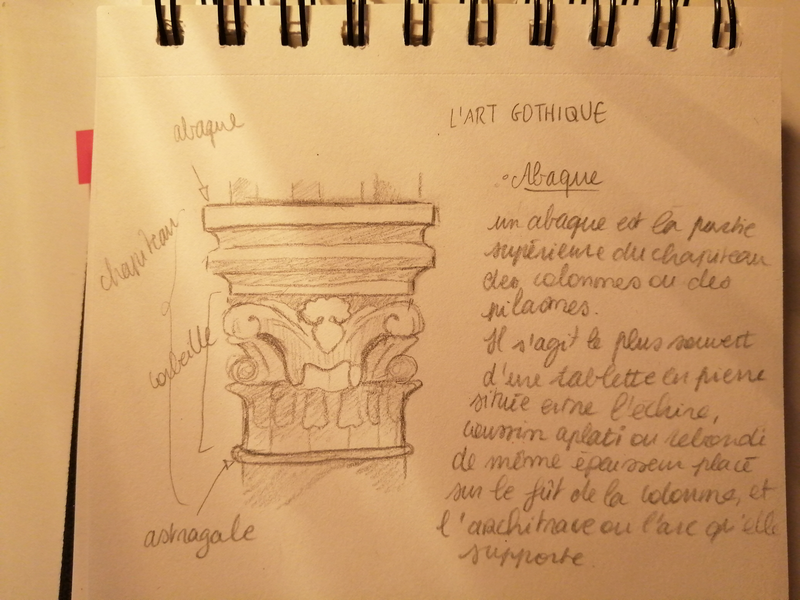 L'ART GOTHIQUE
abaque
chapiteau
corbeille
astragale
Abaque
un abaque est la partie
supérieure du chapiteau
des colonnes ou des
pilastres.
Il s'agit le plus souvent
d'une tablette en pierre
située entre l'échine,
coussin aplati ou rebondi
de même épaisseur placé
sur le fût de la colonne, et
l'architrave ou l'arc qu'elle
supporte.